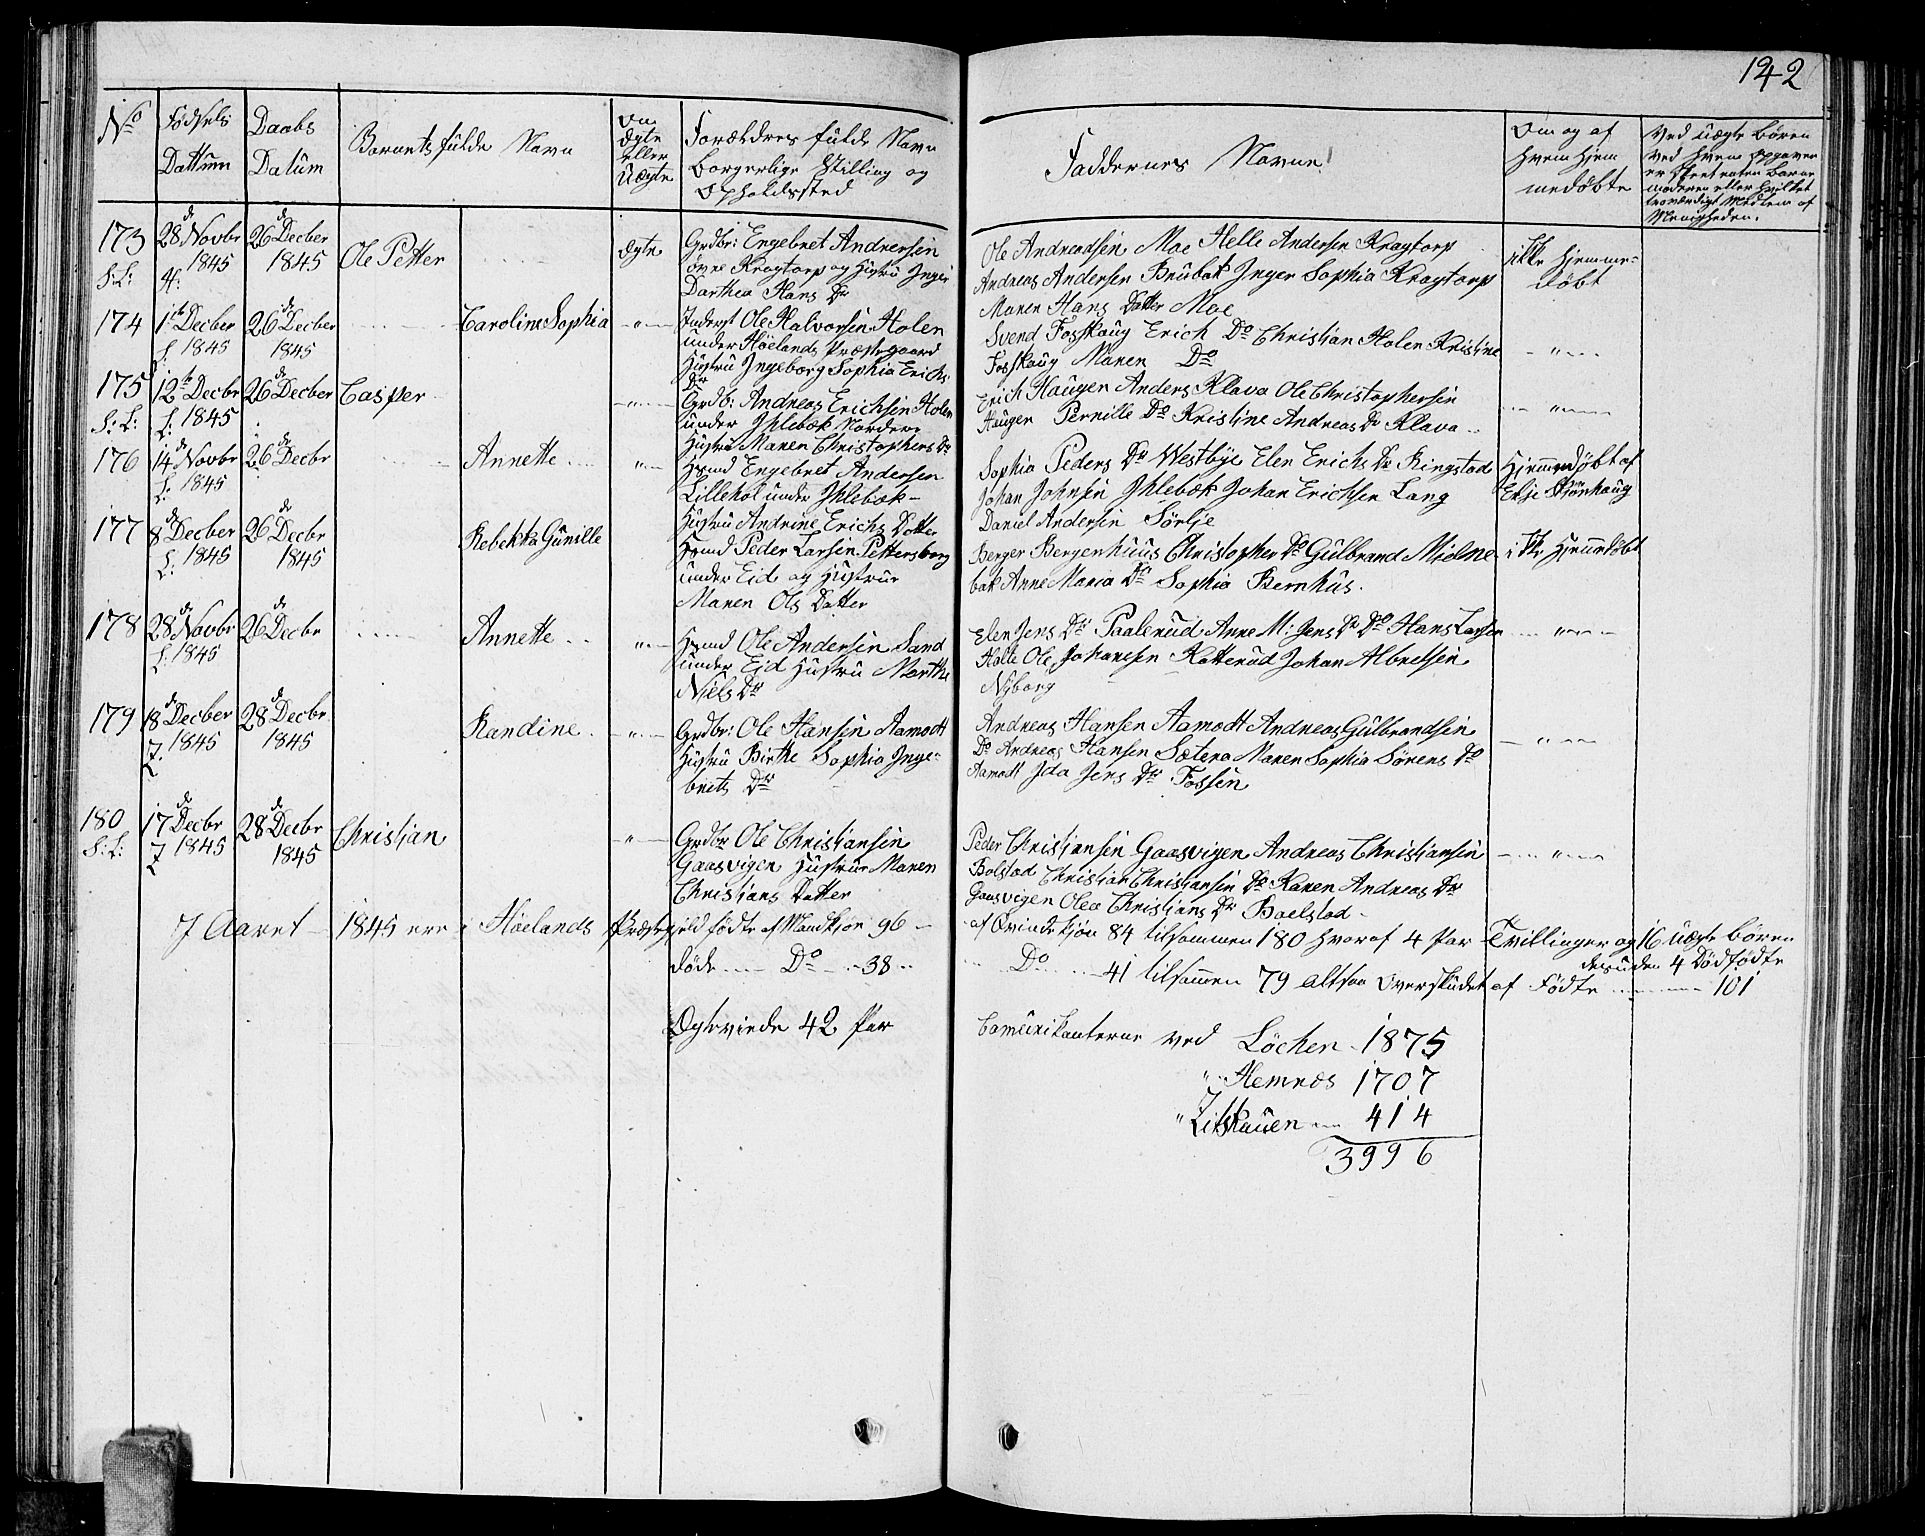 142
No
Fødsels
Dattum
Daabs
Datum
Barnets fulde Navn
Om
Ægte
eller
Uægte
Forældres fulde Navn
Borgerlige Stilling og
Opholdssted
Faddernes Navne
Om og af
hvem hjem
medøbte
Ved uægte Børen
ved hvem opgaven
er skeet enten Barne
moderen eller hvilket
troværdigt Medlem af
Menigheden.
173 28de Novbr 1845 26de Decber 1845 Ole Petter Ægte
Grdbr: Engebret Andreasen
øvre Kragtorp og Hustru Inger
Dorthea Hans Dr
Ole Andreadsen Moe Helle Andersen Kragtorp
Andreas Andersen Brubak Inger Sophia Kragtorp
Maren Hans Datter Moe
ikke Hjemme-
døbt
174 1te Decber 1845 26de Decber 1845 Caroline Sophia
Inderst Ole Halvorsen Holen
under Høelands Præstegaard
Hustru Ingeborg Sophia Erichs
Dr
Svend Fosshaug Erich Do Christian Holen Kristine
Fosshaug Maren Do
175 12te Decbr 1845 26de Decber Casper
Grdb: Andreas Erichsen Holen
under Ihlebæk Nordere
Hustru Maren Christophers Dr
Erich Haugen Anders Klava Ole Christophersen
Haugen Pernille Do Kristine Andreas Dr Klava
176 14de Novbr 1845 26de Decbr Annette
Hsmd Engebret Andersen
Lillehol under Ihlebæk
Hustru Andrine Erichs Datter
Sophia Peders Dr Westbye Elen Erichs Dr Ringstad
Johan Johnsen Ihlebæk Johan Erichsen Lang
Daniel Andersen Sörlie
Hjemmedøbt af
177 8de Decber 1845 26de Decbr 1845 Rebekka Gunille
Hsmd Peder Larsen Pettersborg
under Eid og Hustrue
Maren Ols Datter
Berger Bergenhuus Christopher Do Gulbrand Mielne
bæk Anne Maria Do Sophia Bernhus.
ikke Hjemdøbt
178 28de Novbr 1845 26de Decbr Annette
Hsmd Ole Andersen Sand
under Eid Hustru Marthe
Niels Dr
Elen Jens Dr Paalerud Anne M: Jens Dr Do Hans Larsen
Holte Ole Johanesen Katterud Johan Albretsen
Nyborg
179 18de Decber 1845 28de Decbr 1845 Randine
Grdbr: Ole Hansen Aamodt
Hustru Birthe Sophia Inge-
brets Dr
Andreas Hansen Aamodt Andreas Gulbrandsen
Do Andreas Hansen Sætera Maren Sophia Sörens Do
Aamodt Ida Jens Dr Fossen
180 17de Decbr 1845 28de Decbr 1845 Christian
Grdbr Ole Christiansen
Gaasvigen Hustrue Maren
Christians Datter
Peder Christiansen Gaasvigen Andreas Christiansen
Bolstad Christian Christiansen Do Karen Andreas Dr
Gaasvigen Olea Christians Dr Boelstad
I Aaret 1845 ere i Høelands Præstegjeld fødte af Mandkjøn 96 af Qvindekjøn 84 tilsammen 180 hvoraf 4 Par Tvillinger og 16 uægte Børen
desuden 4 Dødfødte
døde Do 38 Do 41 tilsammen 79 altsaa Overskudet af Fødte 101
Ægteviede 42 Par
Comunikanterne ved Löchen 1875
" Hemnæs 1707
" Zitskauen 414
3996